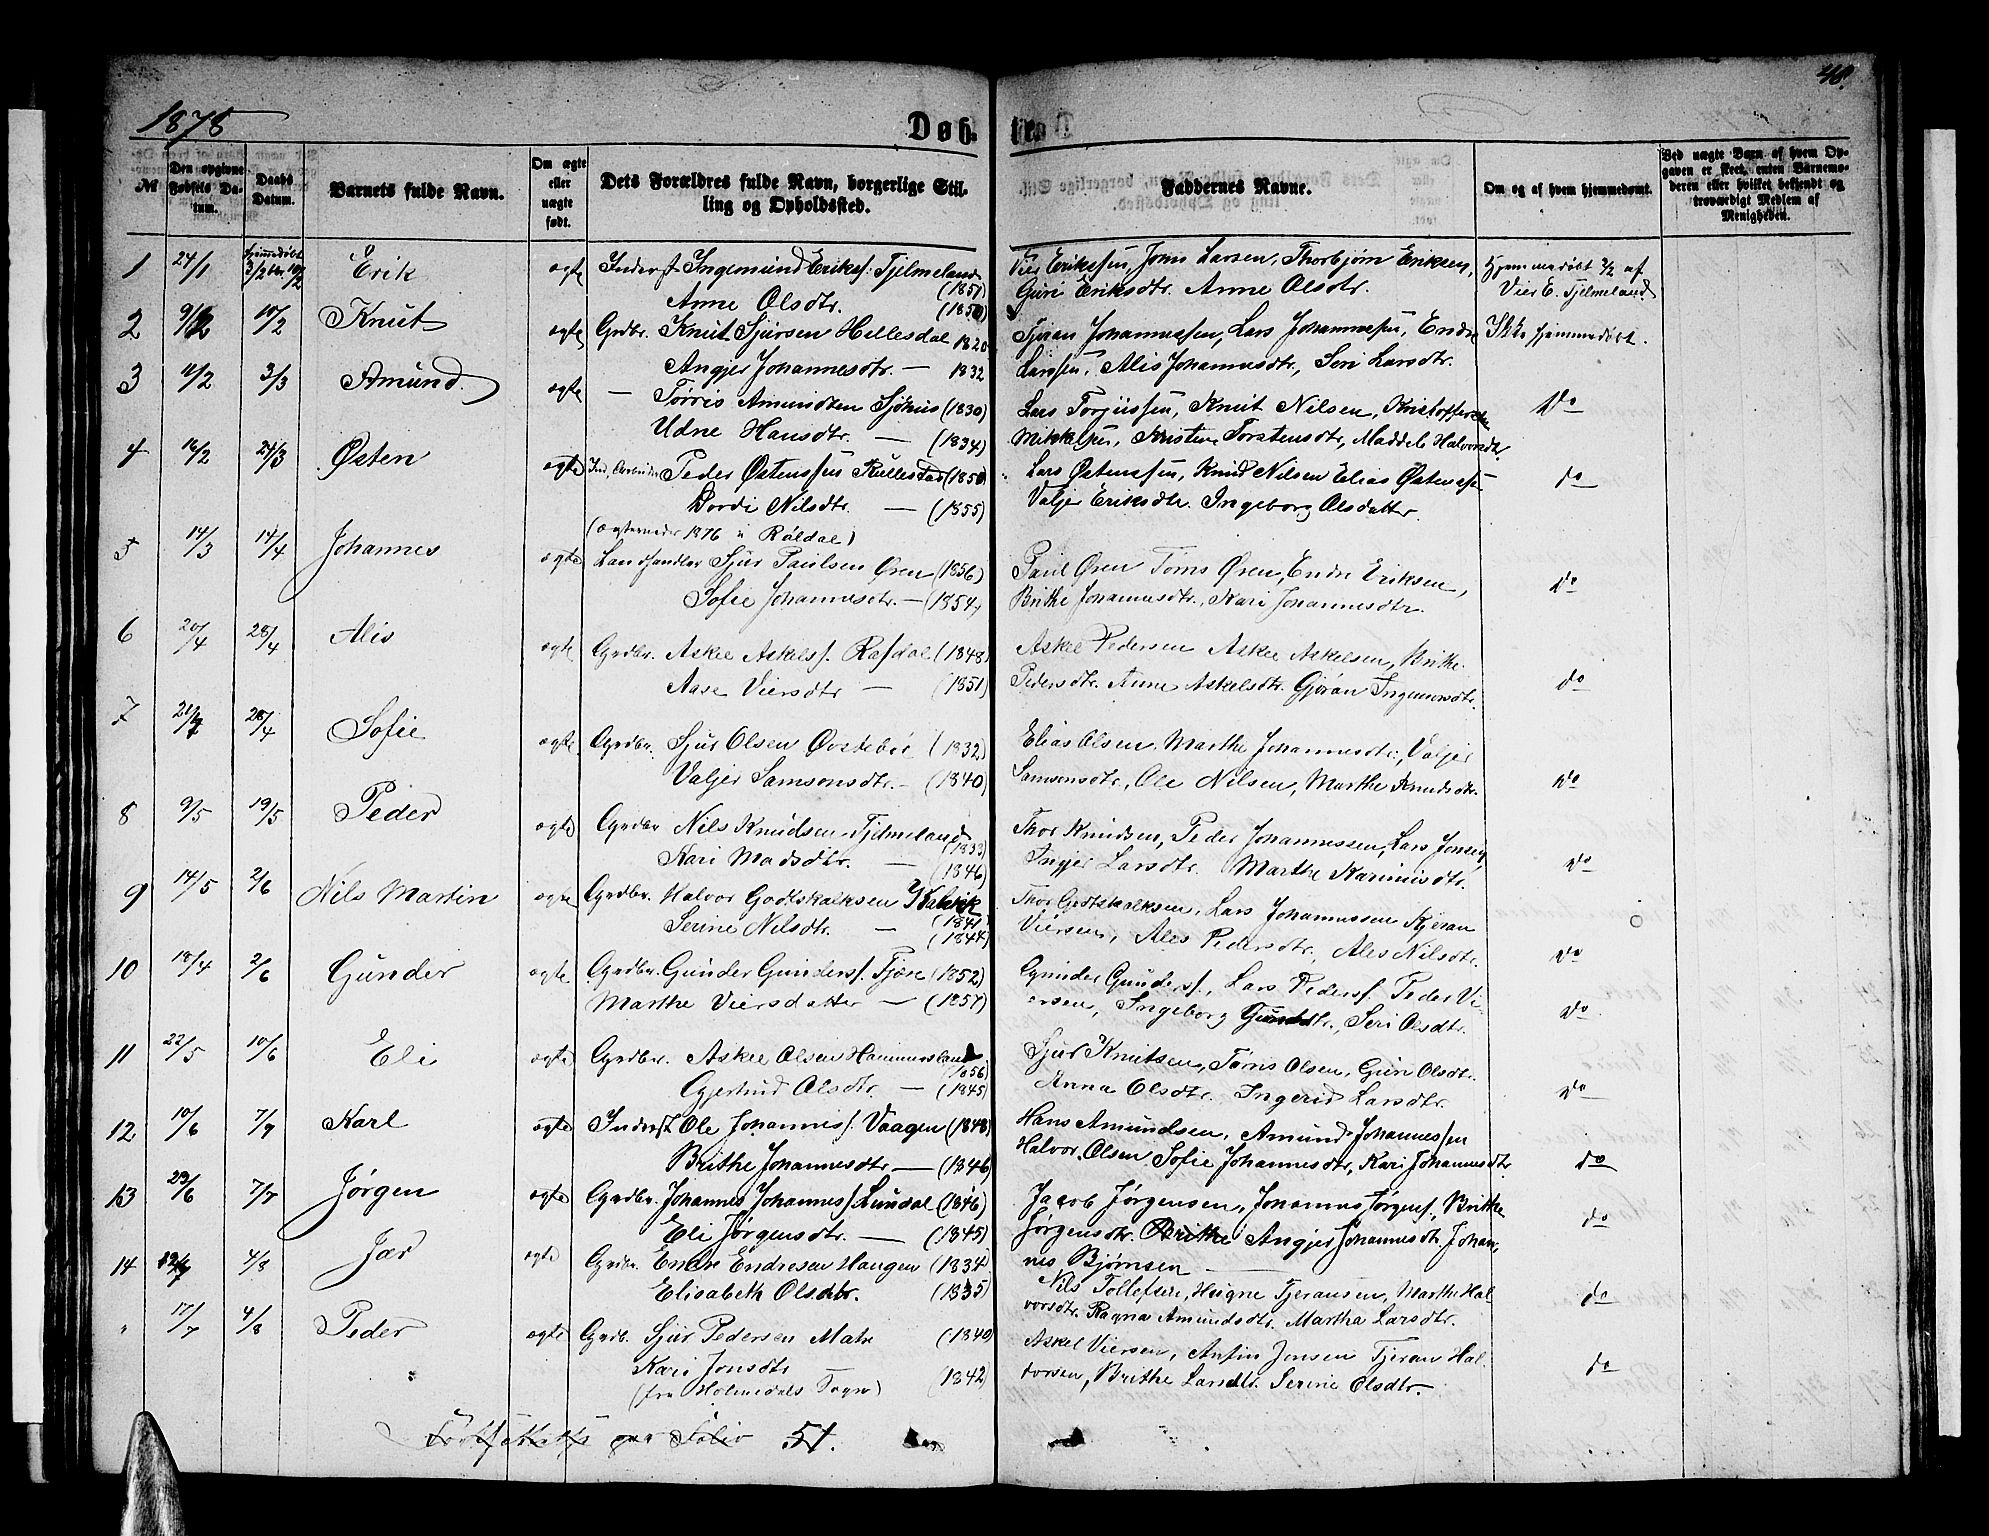 1878
48.
Døb
te.
№
Den opgivne Fødsels Datum.
Daabs Datum.
Barnets fulde Navn.
Om ægte eller uægte født.
Dets Forældres fulde Navn, borgerlige Stilling og Opholdssted.
Faddernes Navne.
Om og af hvem hjemmedøbt.
Ved uægte Barn af hvem Opgaven er skeet, enten Barnemoderen eller hvilket bekjendt og troværdigt Medlem af Menigheden.
1 24/1 hjemmedøbt 3/2 10/2 Erik ægte Inderst Ingemund Erikss. Tjelmeland (1851)
Anne Olsdtr. (1850)
Vier Erikssen, Jons Larsen, Thorbjørn Eriksen,
Guri Eriksdtr. Anne Olsdtr.
Hjemmedøbt 3/2 af
Vier E. Tjelmeland
2 9/2 10/2 Knut ægte Grdbr. Knut Sjursen Hellesdal 1820
Angjer Johannesdtr. — 1832
Tjeran Johannessen, Lars Johannessen, Endre
Larssen, Alis Johannesdtr, Seri Larsdtr.
Ikke hjemmedøbt.
3 11/2 3/3 Amund ægte — Tørris Amundsen Sjöhus (1830)
Udne Hansdtr. — (1834)
Lars Torjussen, Knut Nilsen, Kristoffer
Mikkelsen, Kristens Torstensdtr, Maddele Halvorsdtr.
Do
4 16/2 24/3 Østen ægte Ind, Arbeider Peder Østenssen Kellestad (1850)
Dordi Nilsdtr. — (1855)
(ægteviede 1876 i Röldal)
Lars Østenssen, Knud Nilsen Elias Østenss
Valjer Eriksdtr. Ingeborg Olsdatter
do
5 14/3 14/4 Johannes ægte Landhandler Sjur Paulsen Ören (1856)
Sofie Johannesdtr. — (1854)
Paul Øren Töns Øren, Endre Eriksen,
Brithe Johannesdtr., Kari Johannesdtr.
do
6 20/4 28/4 Alis ægte Grdbr. Askel Askels. Rafdal (1848)
Aase Viersdtr — (1851)
Askel Pedersen Askel Askelsen, Brithe
Pedersdtr. Anne Askelsdtr. Gjöran Ingemorsdtr.
do
7 21/4 28/4 Sofie ægte Grdbr. Sjur Olsen Östebøe (1832)
Valjer Samsonsdtr. — (1840)
Elias Olsen. Marthe Johannesdtr., Valjer
Samsonsdtr., Ole Nilsen, Marthe Knudsdtr.
do
8 9/5 19/5 Peder ægte Grdbr Nils Knudsen Tjelmeland (1833)
Kari Madsdtr. — (1846)
Thor Knudsen, Peder Johannessen, Lars Jonsen,
Ingjer Larsdtr. Marthe Karinusdtr.
do
9 14/5 2/6 Nils Martin ægte Grdbr. Halvor Godtskalksen Kalvik (1841)
Serine Nilsdtr. — (1844)
Thor Godtskalksen, Lars Johannessen Kjeran
Viersen, Ales Pedersdtr., Ales Nilsdtr.
do
10 18/4 2/6 Gunder ægte Grdbr. Gunder Gunders. Fjöse (1852)
Marthe Viersdatter — (1857)
Gunder Gunders., Lars Peders. Peder Vi-
ersen, Ingeborg Gunddtr., Seri Olsdtr.
do
11 22/5 10/6 Eli ægte Grdbr. Askel Olsen Hammersland 1856)
Gjertrud Olsdtr. — (1845)
Sjur Knutsen, Töns Olsen, Guri Olsdtr.
Anna Olsdtr. Ingerid Larsdtr.
do
12 10/6 7/7 Karl ægte Inderst Ole Johannes/. Vaagen (1848)
Brithe Johannesdtr — (1846)
Hans Amundsen, Amund Johannessen
Halvor Olsen, Sofie Johannesdtr, Kari Johannesdtr.
do
13 23/6 7/7 Jørgen ægte Grdbr. Johannes Johannes/. Lundal (1846)
Eli Jørgensdtr. — (1845)
Jacob Jørgensen, Johannes Jørgens., Brithe
Jørgensdtr. Brithe Angjer Johannesdtr. Johan,
nes Bjørnsen
do
14 12/7 4/8 Jær ægte Grdbr. Endre Endresen Haugen (1834)
Elisabeth Olsdtr. (1835)
Nils Tollefsen, Heigne Tjeransen, Marthe Hal
vorsdtr. Ragna Amundsdtr. Martha Larsdtr.
do
" 17/7 4/8 Peder ægte Grdb. Sjur Pedersen Matre (1840)
Kari Jonsdtr — (1842)
(fra Holmedals Sogn)
Askel Viersen, Anfin Jonsen Tjeran Hal-
vorsen, Brithe Larsdtr. Serine Olsdtr.
do
Fortsættelse paa Folio 51.